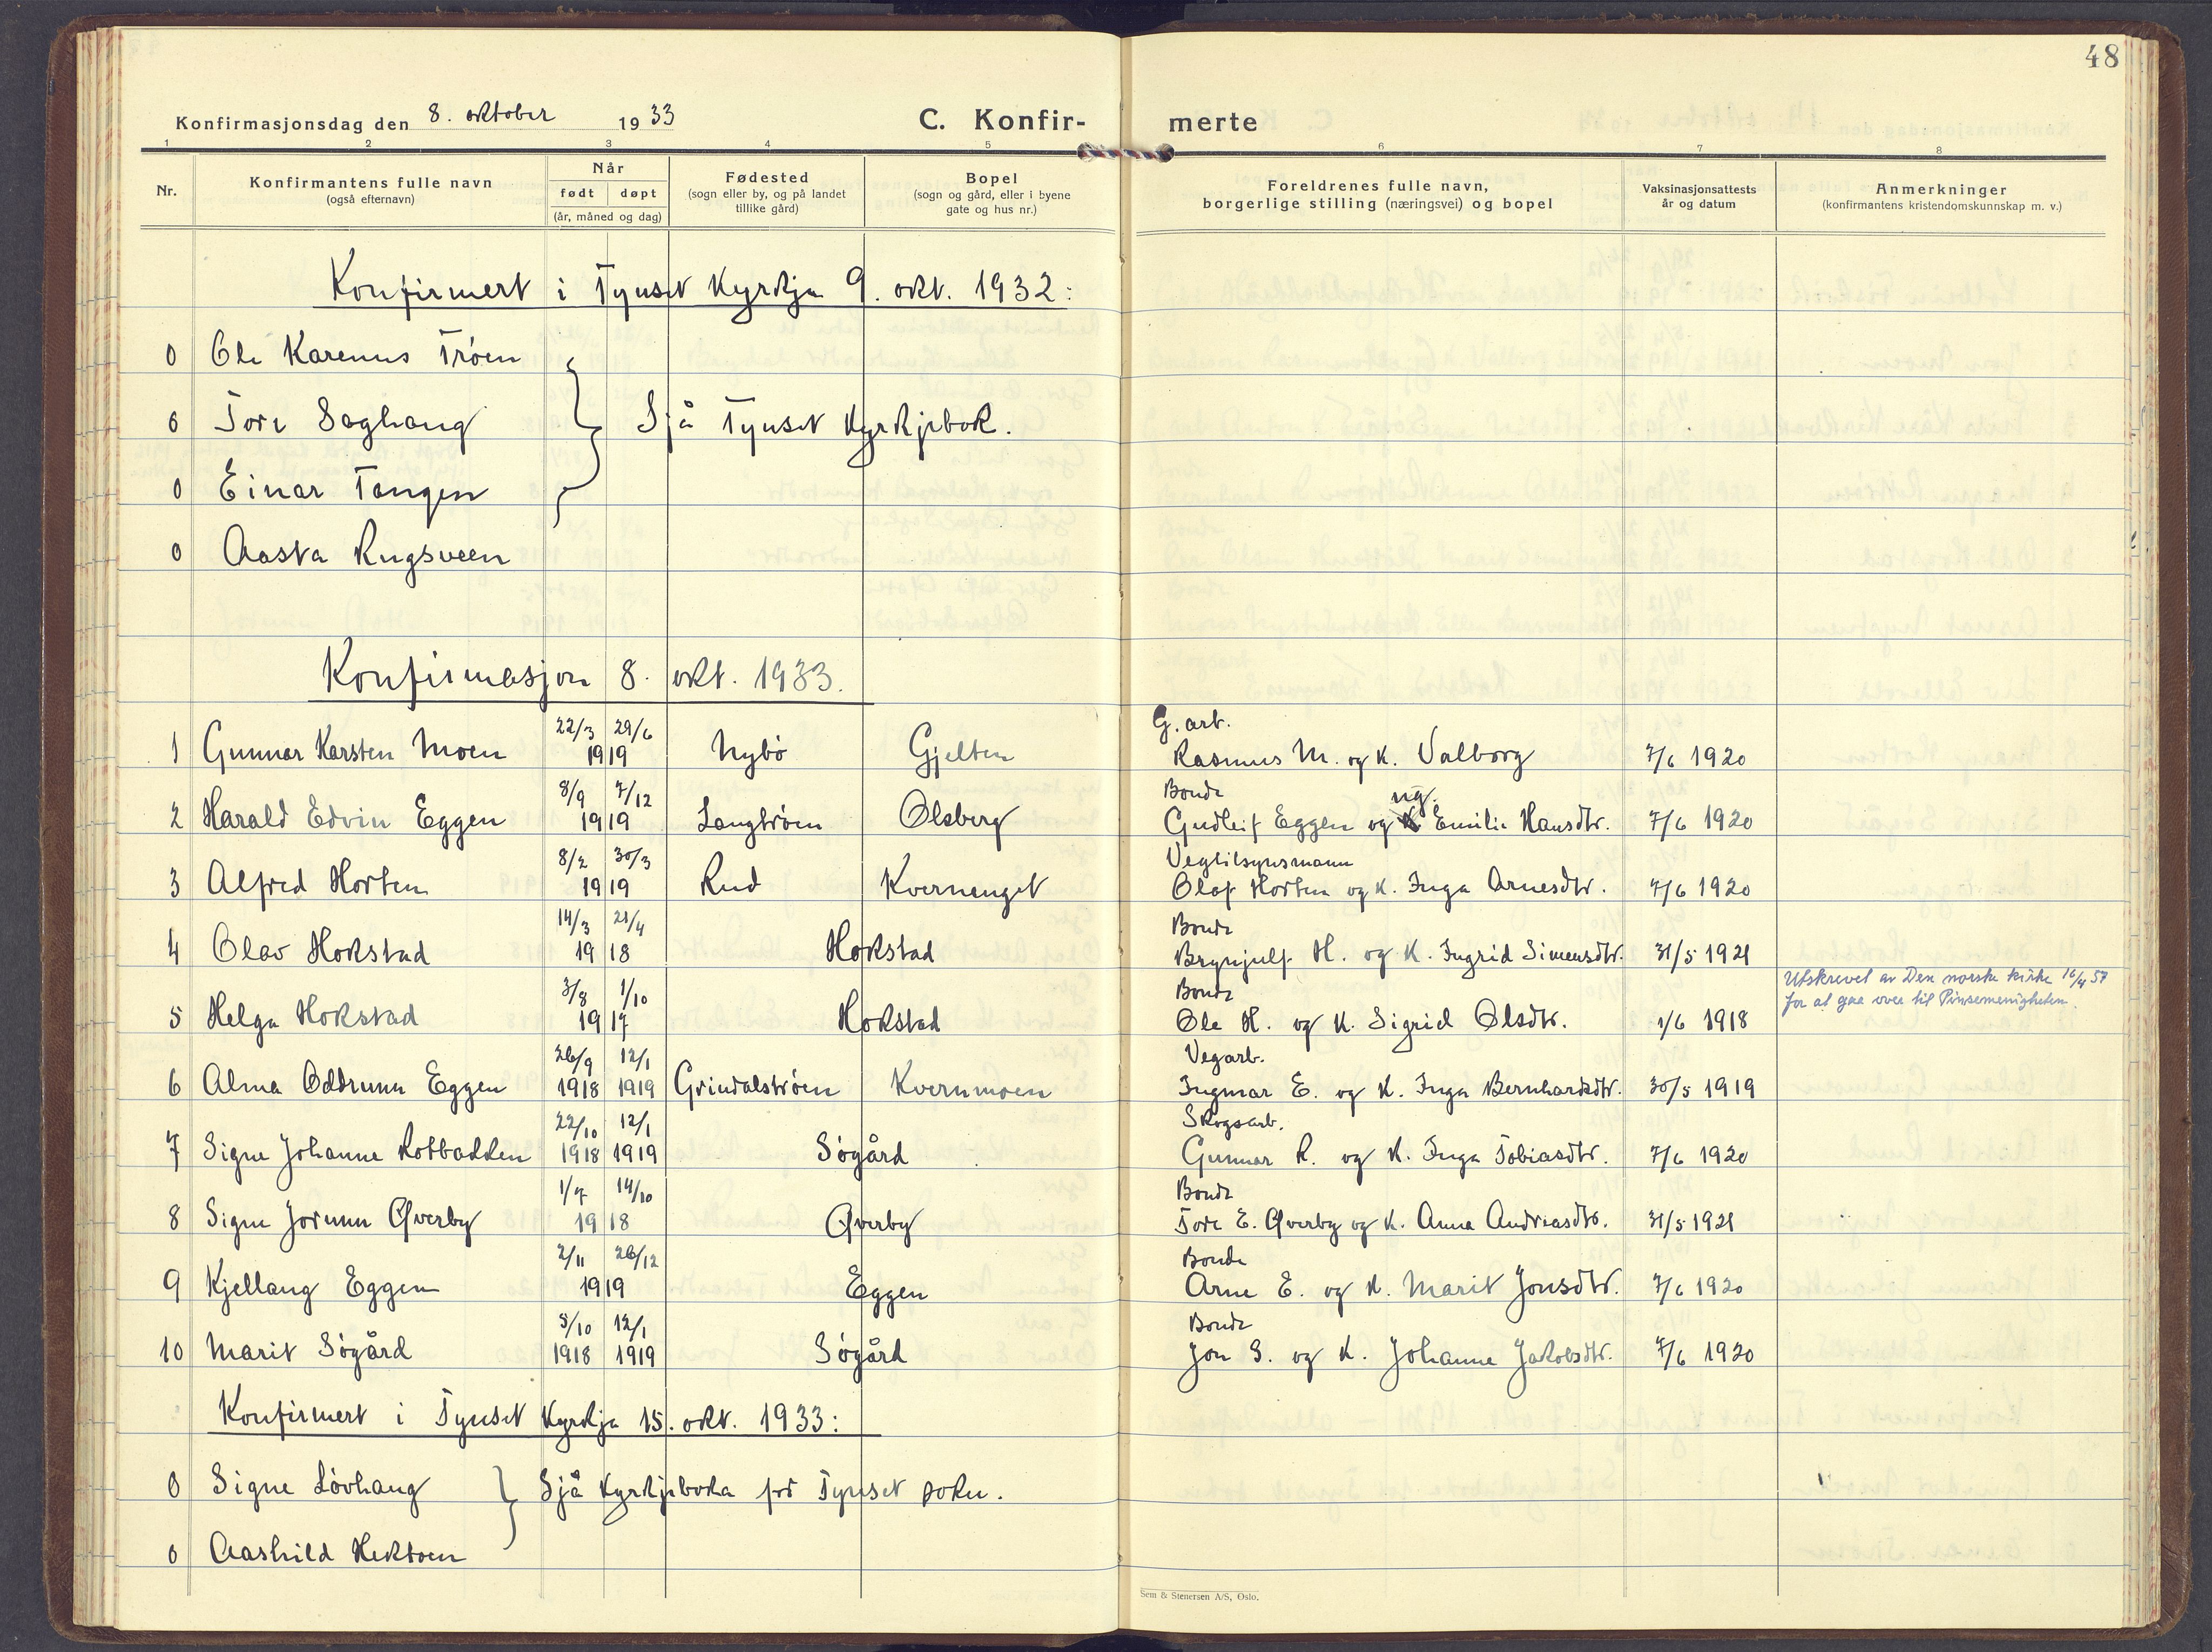 48
Konfirmasjonsdag den 8. oktober 1933 C. Konfir- merte
1 2 3 4 5 6 7 8
Nr. Konfirmantens fulle navn (også efternavn) Når født døpt (år, måned og dag) Fødested (sogn eller by, og på landet tillike gård) Bopel (sogn og gård, eller i byene gate og hus nr.) Foreldrenes fulle navn, borgerlige stilling (næringsvei) og bopel Vaksinasjonsattests år og datum Anmerkninger (konfirmantens kristendomskunnskap m. v.)
Konfirmert i Tynset Kyrkja 9. okt. 1932:
0 Ole Karenus Trøen
0 Tore Saghaug Sjå Tynset Kyrkjebok.
0 Einar Tangen
0 Aasta Rugsveen
Konfirmasjon 8. okt. 1933.
22/3 29/6 G. arb.
1 Gunnar Karsten Moen 1919 Nybø Gjelten Rasmus M. og k. Valborg 7/6 1920
8/9 7/12 Bonde ug.
2 Harald Edvin Eggen 1919 Langtrøen Olsberg Gudleif Eggen og Emilie Hansdtr. 7/6 1920
8/2 30/3 Vegtilsynsmann
3 Alfred Horten 1919 Rud Kvernenget Olaf Horten og k. Inga Arnesdtr. 7/6 1920
14/3 21/4 Bonde
4 Olav Hokstad 1918 Hokstad Brynjulf H. og k. Ingrid Simensdtr. 31/5 1921
3/8 1/10 Bonde Utskrevet av Den norske kirke 16/4 57
for at gaa over til Pinsemenigheten.
5 Helga Hokstad 1917 Hokstad Ole H. og k. Sigrid Olsdtr. 1/6 1918
26/9 12/1 Vegarb.
6 Alma Oddrunn Eggen 1918 1919 Grindalstrøen Kvernmoen Ingmar E. og k. Inga Bernhardsdtr. 30/5 1919
22/10 12/1 Skogsarb.
7 Signe Johanne Kobbakken 1918 1919 Søgård Gunnar R. og k. Inga Tobiasdtr. 7/6 1920
1/7 14/10 Bonde
8 Signe Jorunn Øverby 1918 Øverby Tore E. Øverby og k. Anna Andreasdtr. 31/5 1921
2/11 26/12 Bonde
9 Kjellaug Eggen 1919 Eggen Arne E. og k. Marit Jonsdtr. 7/6 1920
5/10 12/1 Bonde
10 Marit Søgård 1918 1919 Søgård Jon S. og k. Johanne Jakobsdtr. 7/6 1920
Konfirmert i Tynset Kyrkja 15. okt. 1933:
0 Signe Løvhaug Sjå Kyrkjeboka for Tynset sokn.
0 Aashild Hektoen
Sem & Stenersen A/S, Oslo.